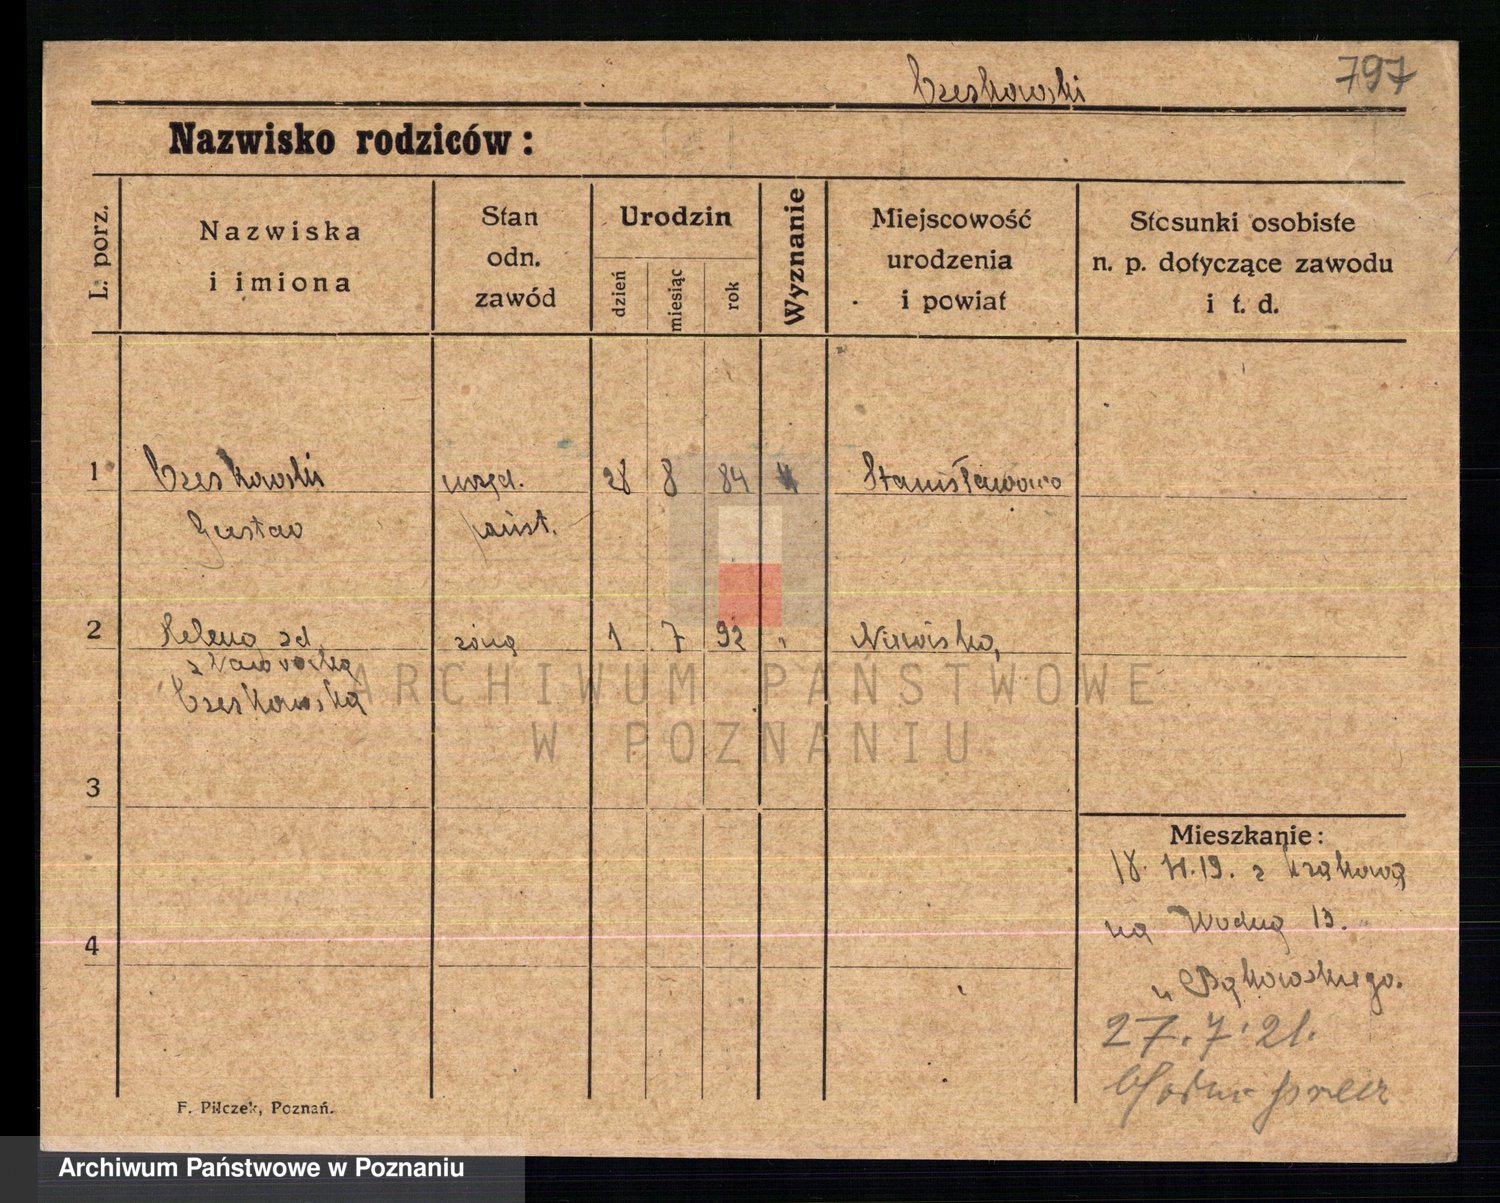 Czeskowski 797
Nazwisko rodziców :
L. porz.
Nazwiska
i imiona
Stan
odn.
zawód
Urodzin
dzień
miesiąc
rok
Wyznanie
Miejscowość
urodzenia
i powiat
Stosunki osobiste
n. p. dotyczące zawodu
i t. d.
1 Czeskowski urzęd. 28 8 84 Stanisławowo
Gustav państ.
2 Helena zd żona 1 7 92 „ Niewiska,
Czeskowska
ARCHIWUM PAŃSTWOWE
W POZNANIU
3
4
Mieszkanie :
18. 11. 19. z Krakowa
na Wodną 13.
u Bąkowskiego.
27. 7. 21.
F. Pilczek, Poznań.
Archiwum Państwowe w Poznaniu